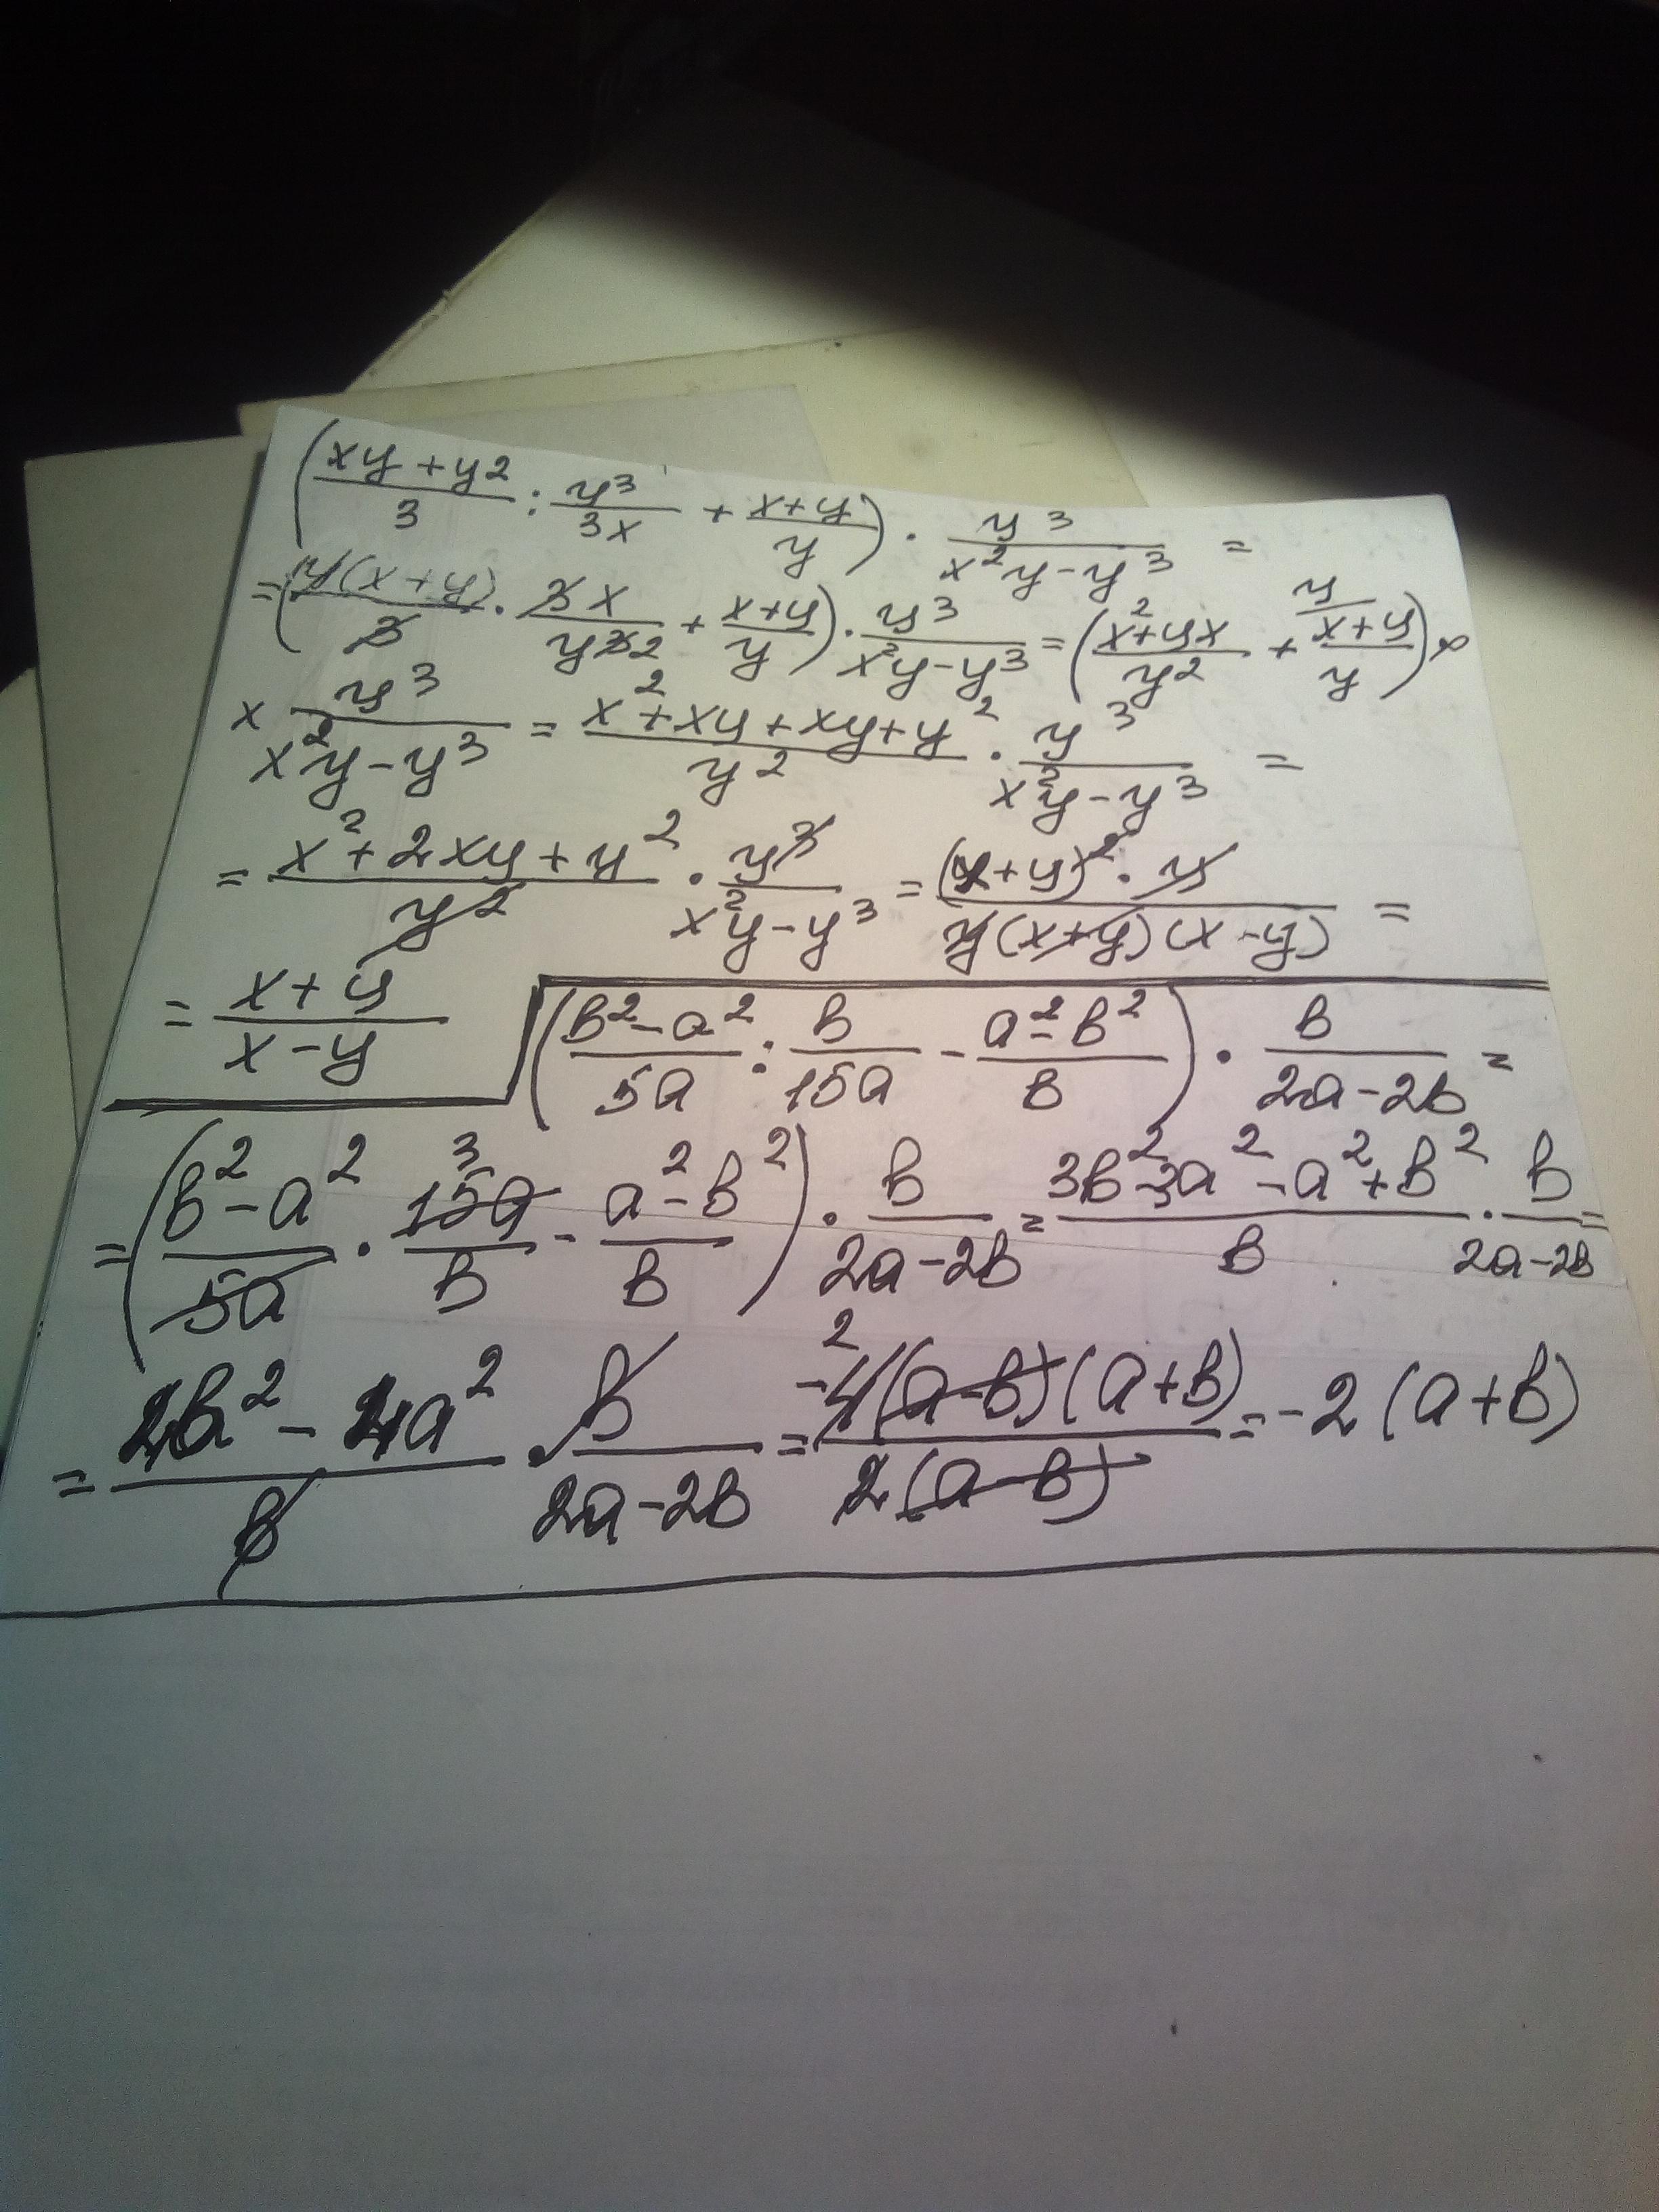 (xy+y²/3 : y³/3x + x+y/y) · y³/x²y-y³ =
=(y(x+y)/3 · 3x/y32 + x+y/y) · y³/x²y-y³ = (x²+yx/y² + y/x+y/y) ×
× y³/x²y-y³ = x²+xy+xy+y²/y² · y³/x²y-y³ =
= x²+2xy+y²/y² · y³/x²y-y³ = (x+y)² · y/y(x+y)(x-y) =
= x+y/x-y
(b²-a²/5a : b/15a - a²-b²/b) · b/2a-2b =
=(b²-a²/5a · 3 15a/b - a²-b²/b) · b/2a-2b = 3b²-3a²-a²+b²/b · b/2a-2b =
= 4b²-4a²/b · b/2a-2b = -2 4(a-b)(a+b)/2(a-b) = -2(a+b)